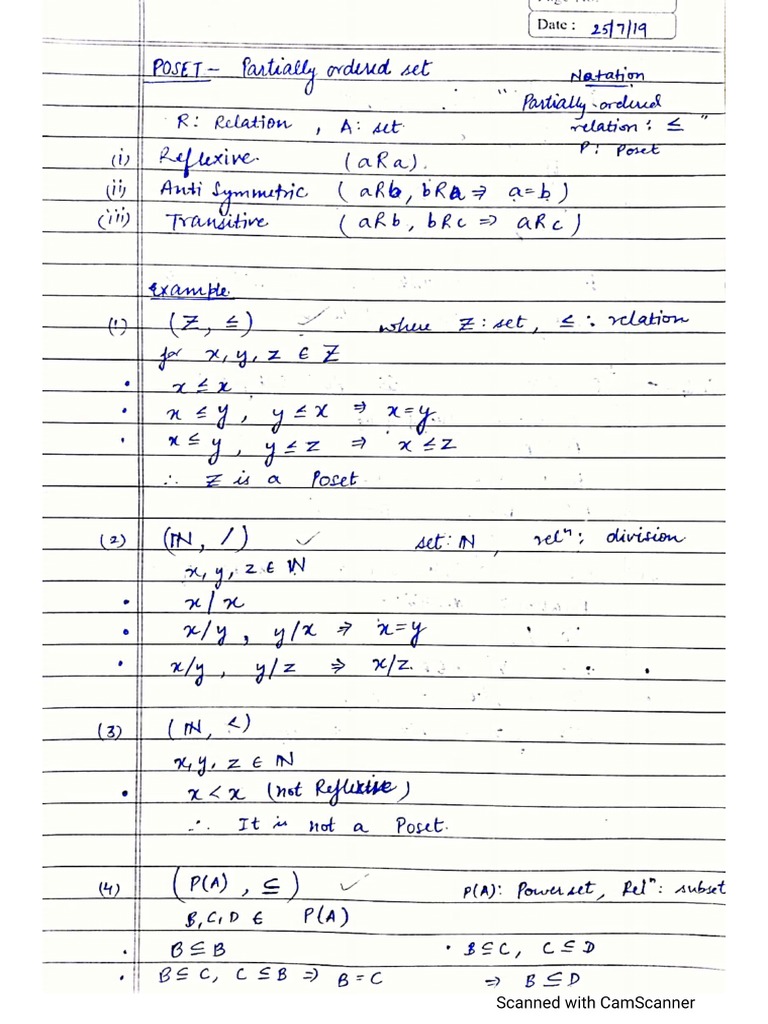 Date : 25/7/19
POSET - Partially ordered set
Notation
"Partially-ordered
R: Relation , A: set
relation : ≤ "
P: Poset
(i) Reflexive. (aRa).
(ii) Anti Symmetric (aRb, bRa ⇒ a=b)
(iii) Transitive (aRb, bRc ⇒ aRc)
Example
(1) (Z, ≤) ✓ where Z: set, ≤ : relation
for x, y, z ∈ Z
• x ≤ x
• x ≤ y, y ≤ x ⇒ x=y.
• x ≤ y, y ≤ z ⇒ x ≤ z
∴ Z is a Poset
(2) (ℕ, /) ✓ set: ℕ, relⁿ: division
x, y, z ∈ ℕ
• x/x
• x/y, y/x ⇒ x=y
• x/y, y/z ⇒ x/z.
(3) (ℕ, <)
x, y, z ∈ ℕ
• x < x (not Reflexive)
∴ It is not a Poset.
(4) (P(A), ⊆) ✓ P(A): Power set, Relⁿ: subset
B, C, D ∈ P(A)
• B ⊆ B • B ⊆ C, C ⊆ D
• B ⊆ C, C ⊆ B ⇒ B = C ⇒ B ⊆ D
Scanned with CamScanner